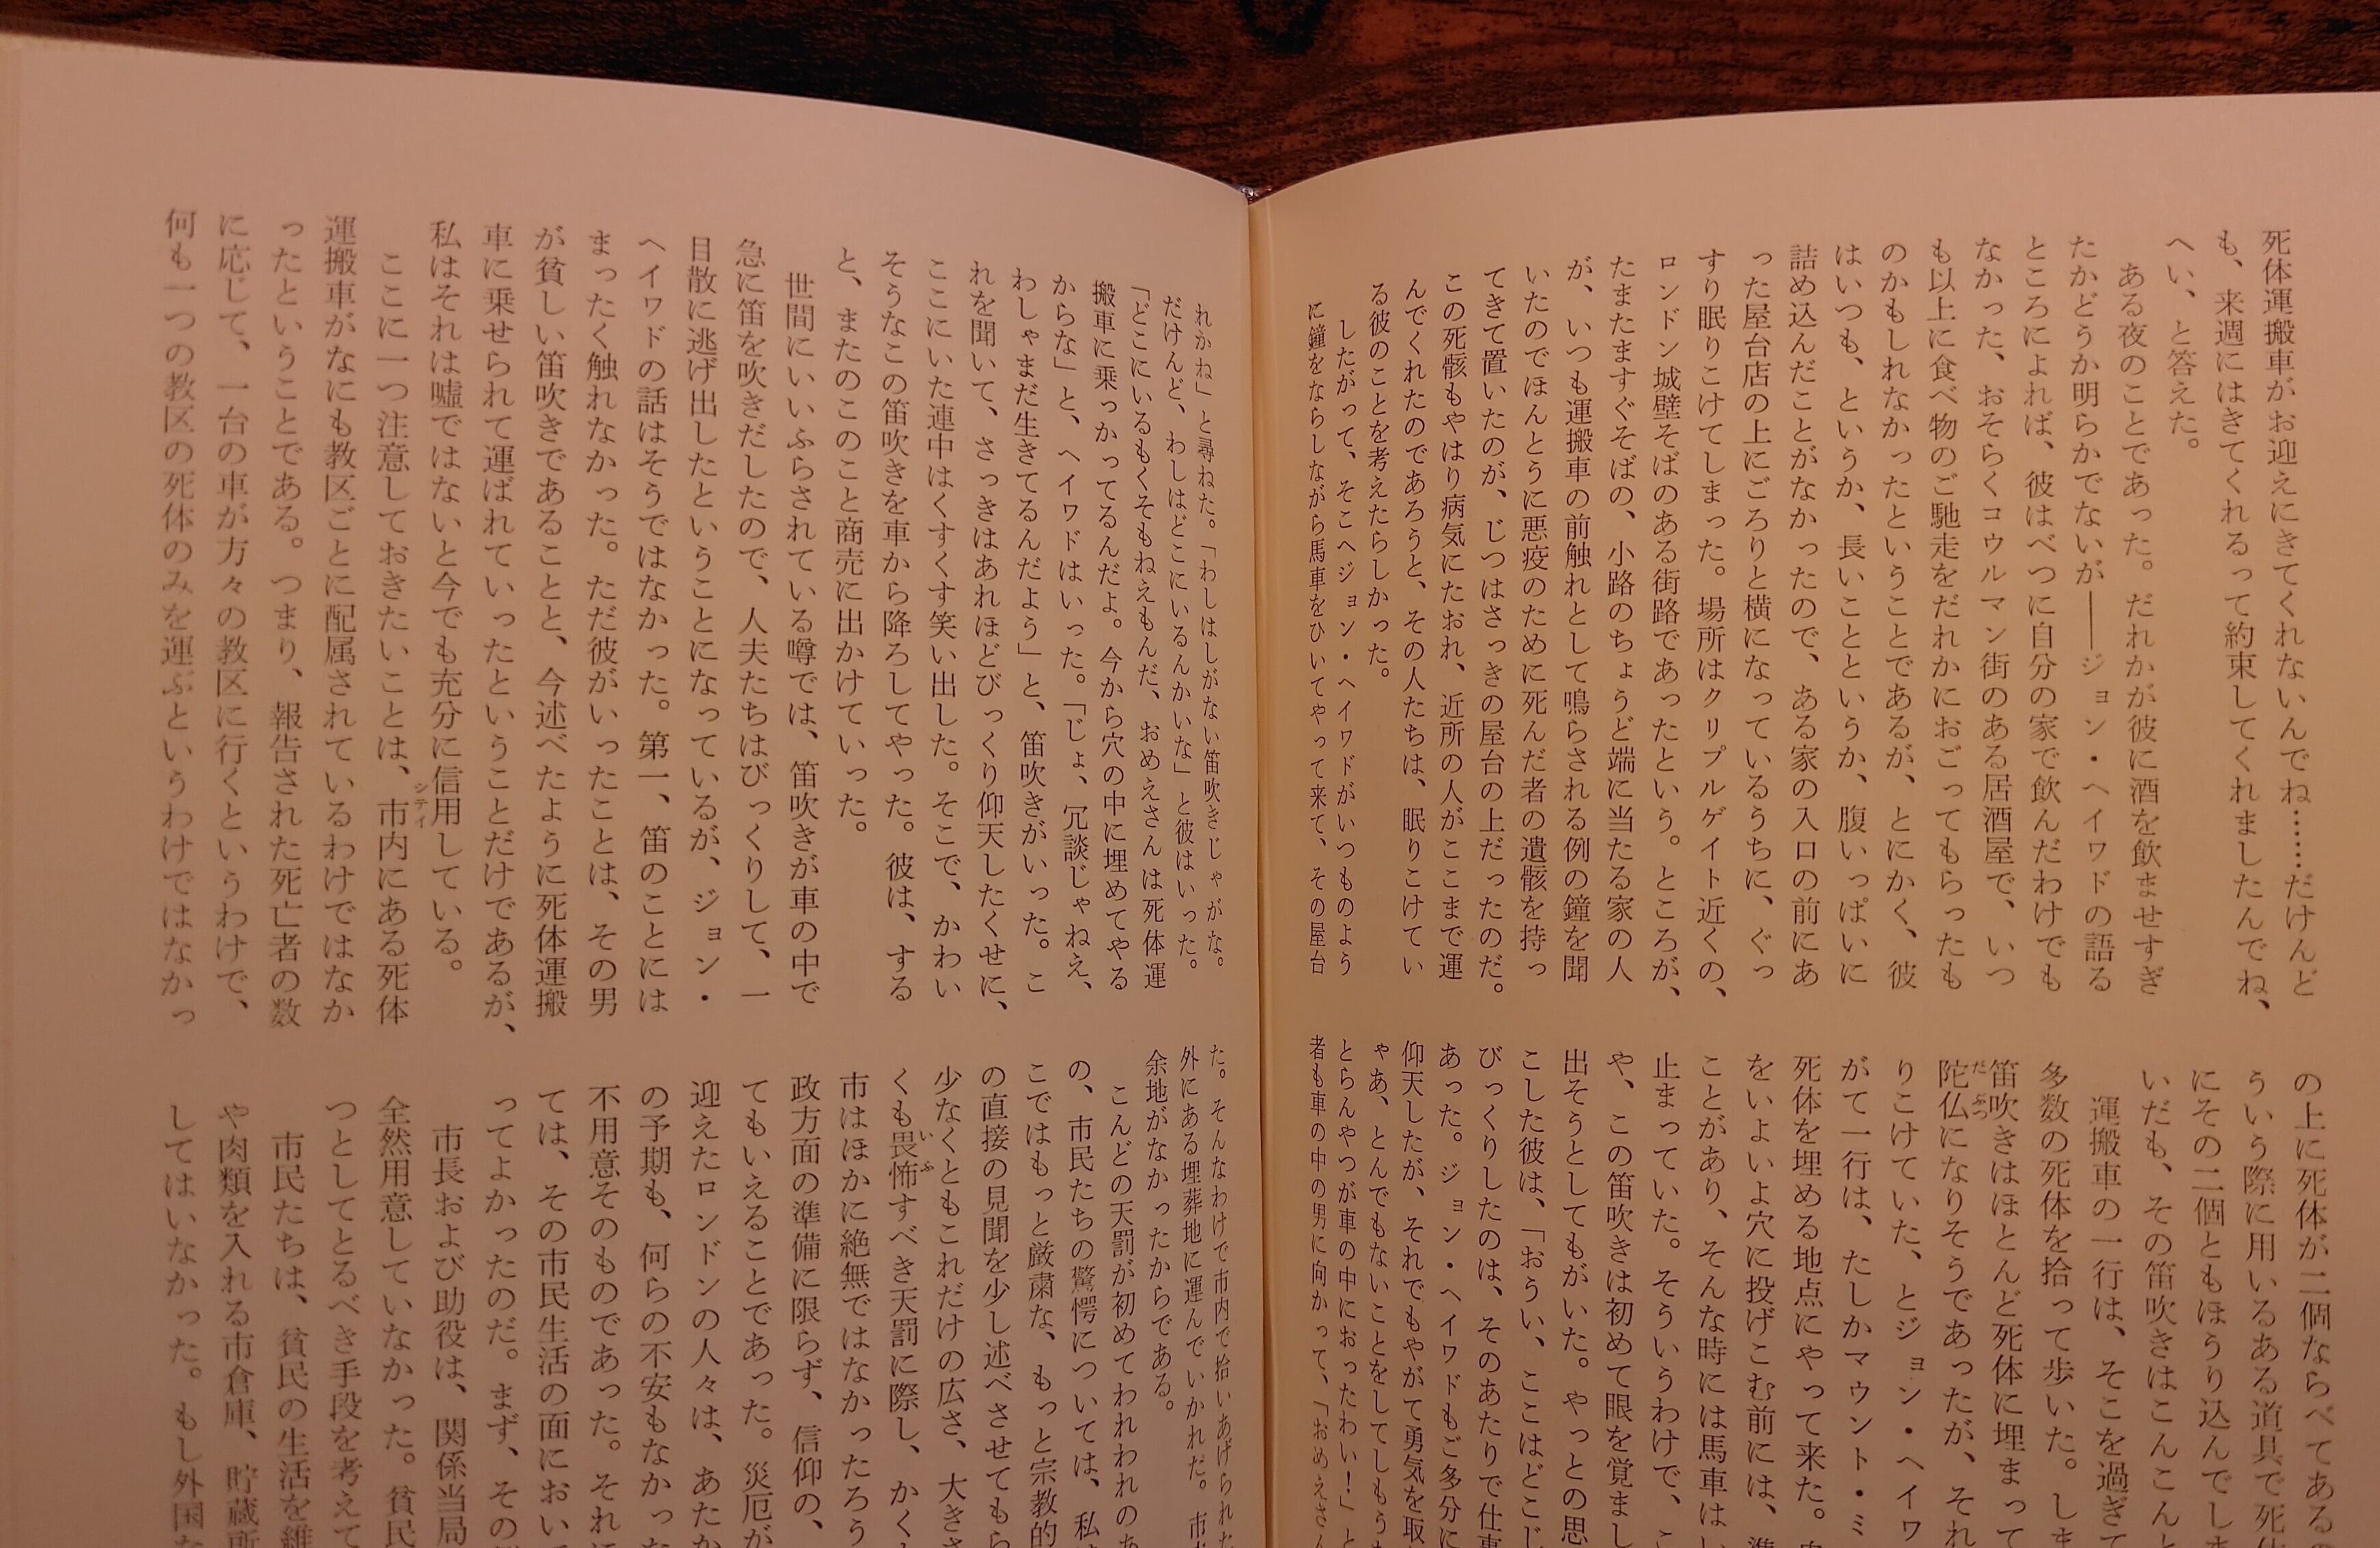 死体運搬車がお迎えにきてくれないんでね……だけんど
も、来週にはきてくれるって約束してくれましたんでね、
へい、と答えた。
ある夜のことであった。だれかが彼に酒を飲ませすぎ
たかどうか明らかでないが――ジョン・ヘイワドの語る
ところによれば、彼はべつに自分の家で飲んだわけでも
なかった、おそらくコウルマン街のある居酒屋で、いつ
も以上に食べ物のご馳走をだれかにおごってもらったも
のかもしれなかったということであるが、とにかく、彼
はいつも、というか、長いことというか、腹いっぱいに
詰め込んだことがなかったので、ある家の入口の前にあ
った屋台店の上にごろりと横になっているうちに、ぐっ
すり眠りこけてしまった。場所はクリプルゲイト近くの、
ロンドン城壁そばのある街路であったという。ところが、
たまたますぐそばの、小路のちょうど端に当たる家の人
が、いつも運搬車の前触れとして鳴らされる例の鐘を聞
いたのでほんとうに悪疫のために死んだ者の遺骸を持っ
てきて置いたのが、じつはさっきの屋台の上だったのだ。
この死骸もやはり病気にたおれ、近所の人がここまで運
んでくれたのであろうと、その人たちは、眠りこけてい
る彼のことを考えたらしかった。
したがって、そこへジョン・ヘイワドがいつものよう
に鐘をならしながら馬車をひいてやって来て、その屋台
の上に死体が二個ならべてあるの
ういう際に用いるある道具で死体
にその二個ともほうり込んでしま
いだも、その笛吹きはこんこんと
運搬車の一行は、そこを過ぎて
多数の死体を拾って歩いた。しま
笛吹きはほとんど死体に埋まって
陀仏になりそうであったが、それ
りこけていた、とジョン・ヘイワ
がて一行は、たしかマウント・ミ
死体を埋める地点にやって来た。
をいよいよ穴に投げこむ前には、
ことがあり、そんな時には馬車は
止まっていた。そういうわけで、こ
や、この笛吹きは初めて眼を覚まし
出そうとしてもがいた。やっとの思
こした彼は、「おうい、ここはどこじ
びっくりしたのは、そのあたりで仕事
あった。ジョン・ヘイワドもご多分に
仰天したが、それでもやがて勇気を取
ゃあ、とんでもないことをしてしもう
とらんやつが車の中におったわい!」と
者も車の中の男に向かって、「おめえさん
れかね」と尋ねた。「わしはしがない笛吹きじゃがな。
だけんど、わしはどこにいるんかいな」と彼はいった。
「どこにいるもくそもねえもんだ、おめえさんは死体運
搬車に乗っかってるんだよ。今から穴の中に埋めてやる
からな」と、ヘイワドはいった。「じょ、冗談じゃねえ、
わしゃまだ生きてるんだよう」と、笛吹きがいった。こ
れを聞いて、さっきはあれほどびっくり仰天したくせに、
ここにいた連中はくすくす笑い出した。そこで、かわい
そうなこの笛吹きを車から降ろしてやった。彼は、する
と、またのこのこと商売に出かけていった。
世間にいいふらされている噂では、笛吹きが車の中で
急に笛を吹きだしたので、人夫たちはびっくりして、一
目散に逃げ出したということになっているが、ジョン・
ヘイワドの話はそうではなかった。第一、笛のことには
まったく触れなかった。ただ彼がいったことは、その男
が貧しい笛吹きであることと、今述べたように死体運搬
車に乗せられて運ばれていったということだけであるが、
私はそれは嘘ではないと今でも充分に信用している。
ここに一つ注意しておきたいことは、市内にある死体
運搬車がなにも教区ごとに配属されているわけではなか
ったということである。つまり、報告された死亡者の数
に応じて、一台の車が方々の教区に行くというわけで、
何も一つの教区の死体のみを運ぶというわけではなかっ
た。そんなわけで市内で拾いあげられた
外にある埋葬地に運んでいかれだ。市
余地がなかったからである。
こんどの天罰が初めてわれわれのあ
の、市民たちの驚愕については、私
こではもっと厳粛な、もっと宗教的
の直接の見聞を少し述べさせてもら
少なくともこれだけの広さ、大きさ
くも畏怖すべき天罰に際し、かく
市はほかに絶無ではなかったろう
政方面の準備に限らず、信仰の、
てもいえることであった。災厄が
迎えたロンドンの人々は、あたか
の予期も、何らの不安もなかった
不用意そのものであった。それに
ては、その市民生活の面におい
ってよかったのだ。まず、その
市長および助役は、関係当局
全然用意していなかった。貧民
つとしてとるべき手段を考えて
市民たちは、貧民の生活を維
や肉類を入れる市倉庫、貯蔵所
してはいなかった。もし外国